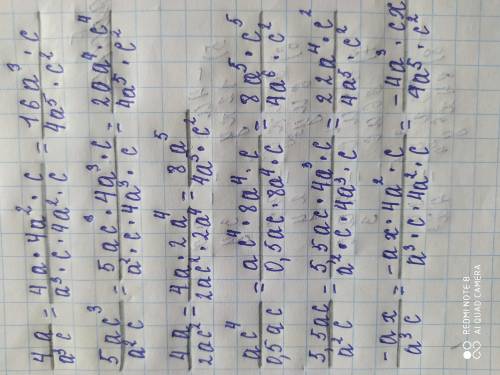 4a/a³c = 4a · 4a² · c/a³ · c · 4a² · c = 16a³ · c/4a⁵ · c²
5ac³/a²c = 5ac³ · 4a³ · c/a² · c · 4a³ · c = 20a⁴ · c⁴/4a⁵ · c²
4a/2ac² = 4a · 2a⁴/2ac² · 2a⁴ = 8a⁵/4a⁵ · c²
ac⁴/0,5ac = ac⁴ · 8a⁴ · c/0,5ac · 8a⁴ · c = 8a⁵ · c⁵/4a⁶ · c²
5,5ac/a²c = 5,5ac · 4a³ · c/a² · c · 4a³ · c = 22a⁴ · c²/4a⁵ · c²
-ax/a³c = -ax · 4a² · c/a³ · c · 4a² · c = -4a³ · cx/4a⁵ · c²
REDMI NOTE 8
AI QUAD CAMERA